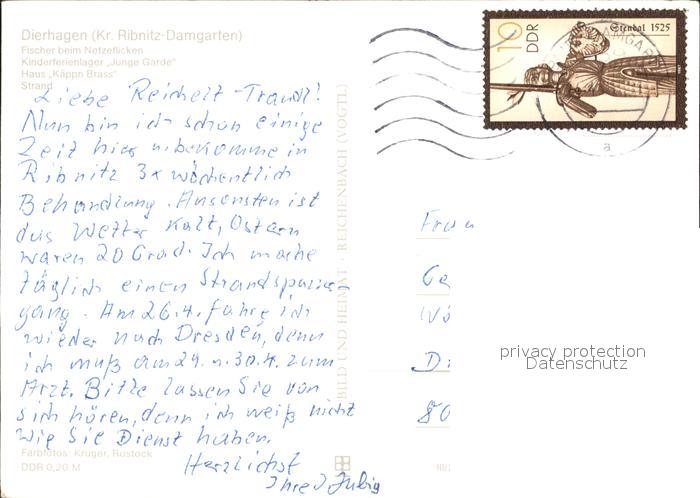 Dierhagen (Kr. Ribnitz-Damgarten)
Fischer beim Netzeflicken
Kinderferienlager „Junge Garde"
Haus „Käppn Brass"
Strand
Liebe Reichelt-Traudl!
Nun bin ich schon einige
Zeit hier u. bekomme in
Ribnitz 3x wöchentlich
Behandlung. Ansonsten ist
das Wetter kalt, Ostern
waren 20 Grad. Ich mache
täglich einen Strandspazier-
gang. Am 26.4. fahre ich
wieder nach Dresden, denn
ich muß am 29. u. 30.4. zum
Arzt. Bitte lassen Sie von
sich hören, denn ich weiß nicht
wie Sie Dienst haben.
Herzlichst
Ihre J.
Farbfotos: Krüger, Rostock
DDR 0,20 M
BILD UND HEIMAT · REICHENBACH (VOGTL)
III/
10
DDR
Stendal 1525
AMGAR
a
Frau
Ge
Wü
D
80
privacy protection
Datenschutz